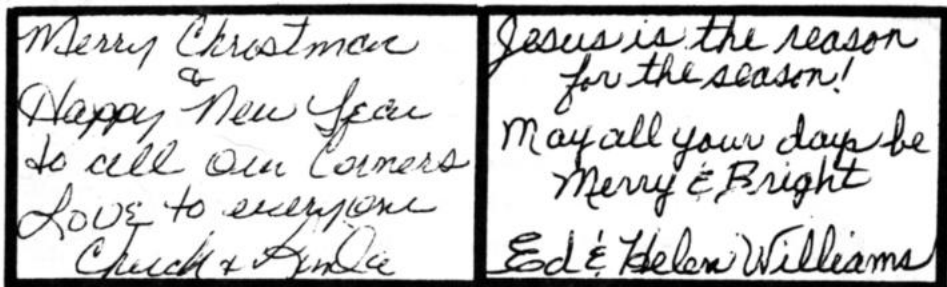 Merry Christmas
&
Happy New Year
to all our Corners
Love to everyone
Chuck &
Jesus is the reason
for the season!
May all your days be
Merry & Bright
Ed & Helen Williams